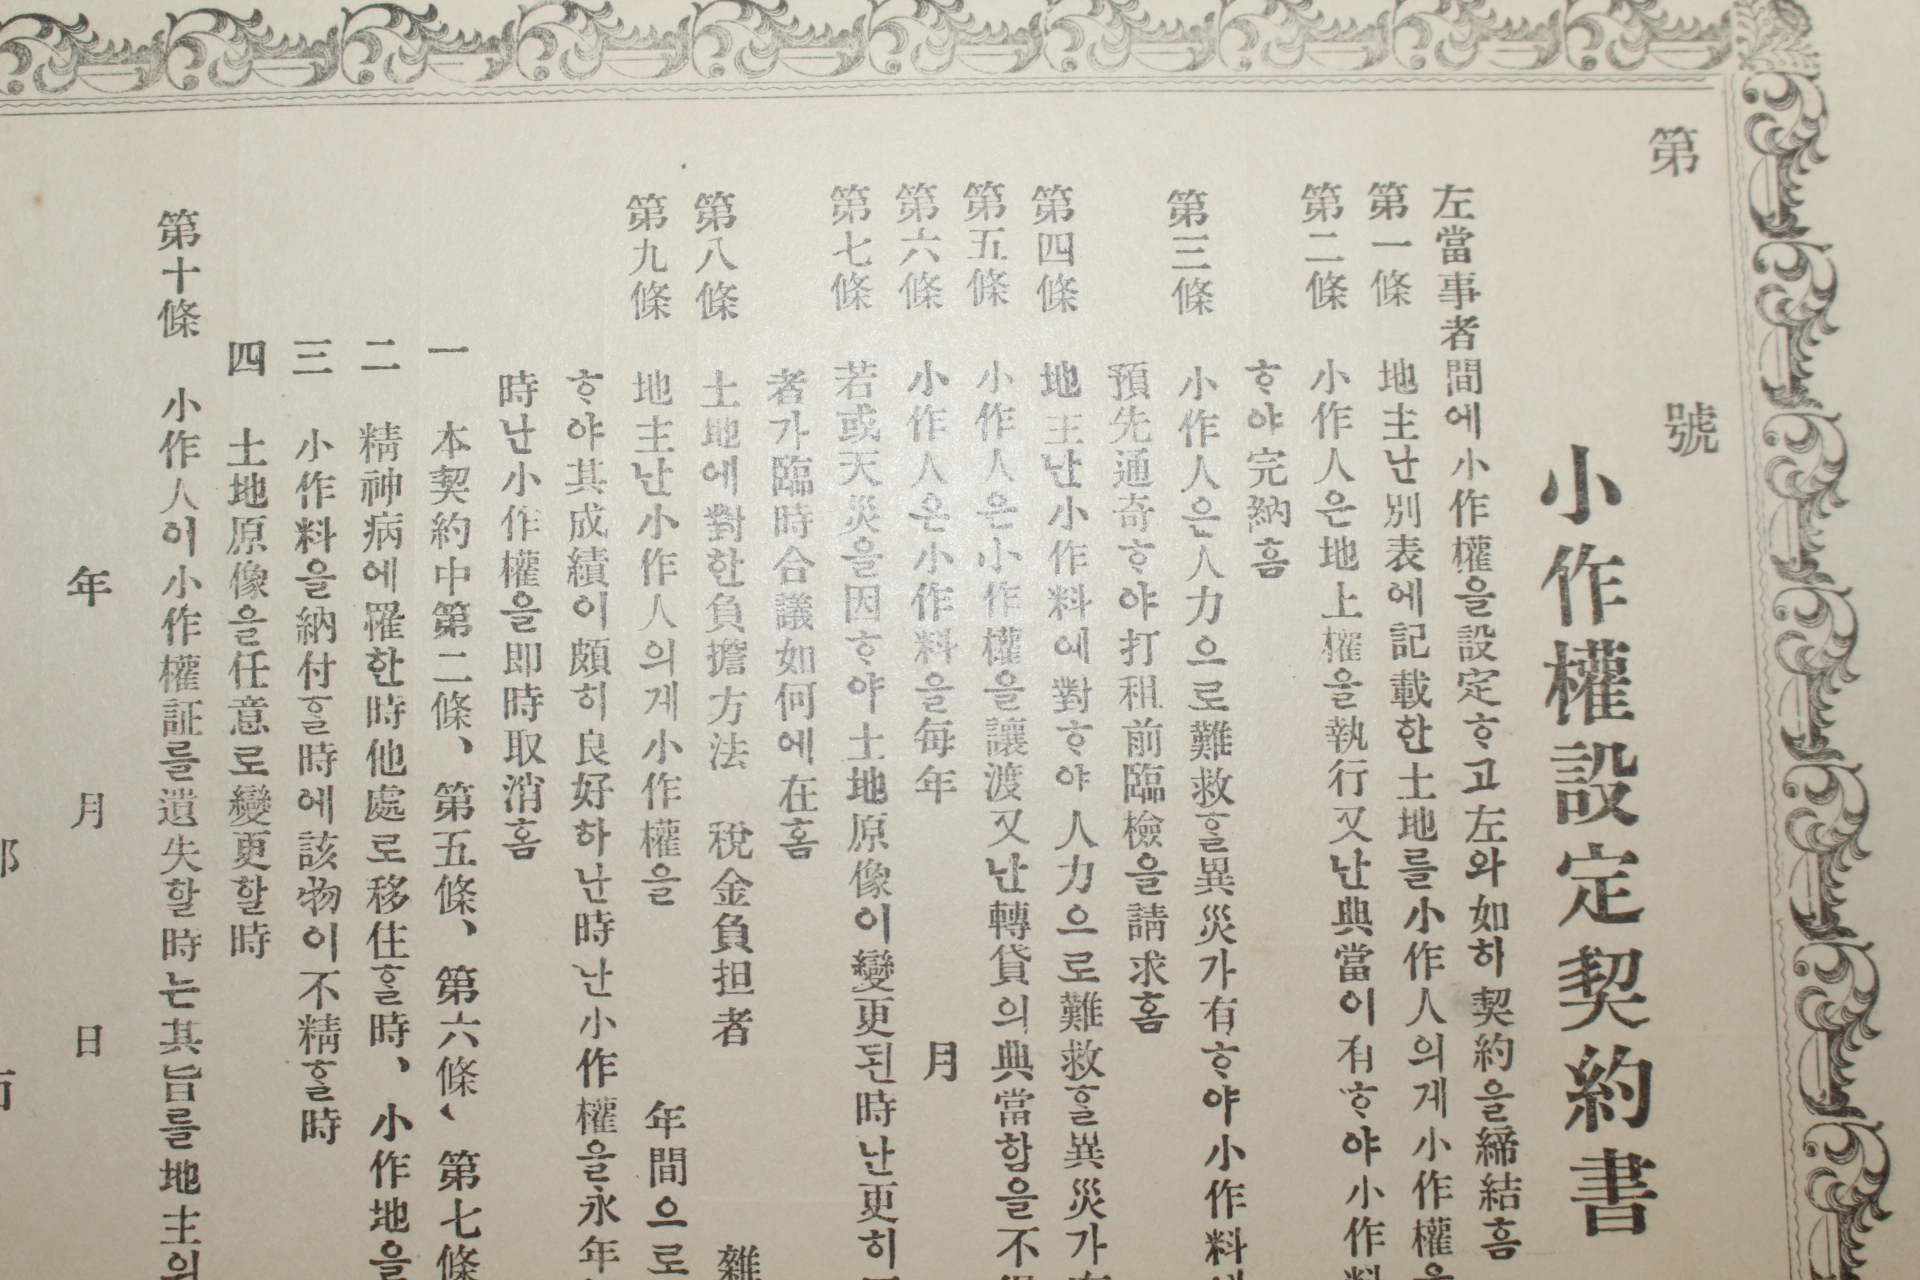 第 號
小作權設定契約書
左當事者間에小作權을設定ᄒᆞ고左와如하契約을締結홈
第一條 地主난別表에記載한土地를小作人의게小作權을
第二條 小作人은地上權을執行又난典當이有ᄒᆞ야小作料
ᄒᆞ야完納홈
第三條 小作人은人力으로難救ᄒᆞᆯ異災가有ᄒᆞ야小作料
預先通奇ᄒᆞ야打租前臨檢을請求홈
第四條 地主난小作料에對ᄒᆞ야人力으로難救ᄒᆞᆯ異災가
第五條 小作人은小作權을讓渡又난轉貸의典當함을不
第六條 小作人은小作料을每年 月
第七條 若或天災을因ᄒᆞ야土地原像이變更된時난更히
者가臨時合議如何에在홈
第八條 土地에對한負擔方法 稅金負担者 雜
第九條 地主난小作人의게小作權을 年間으로
ᄒᆞ야其成績이頗히良好하난時난小作權을永年
時난小作權을即時取消홈
一 本契約中第二條、第五條、第六條、第七條
二 精神病에罹한時他處로移住ᄒᆞᆯ時、小作地을
三 小作料을納付ᄒᆞᆯ時에該物이不精ᄒᆞᆯ時
四 土地原像을任意로變更할時
第十條 小作人이小作權証를遺失할時는其旨를地主의
年 月 日